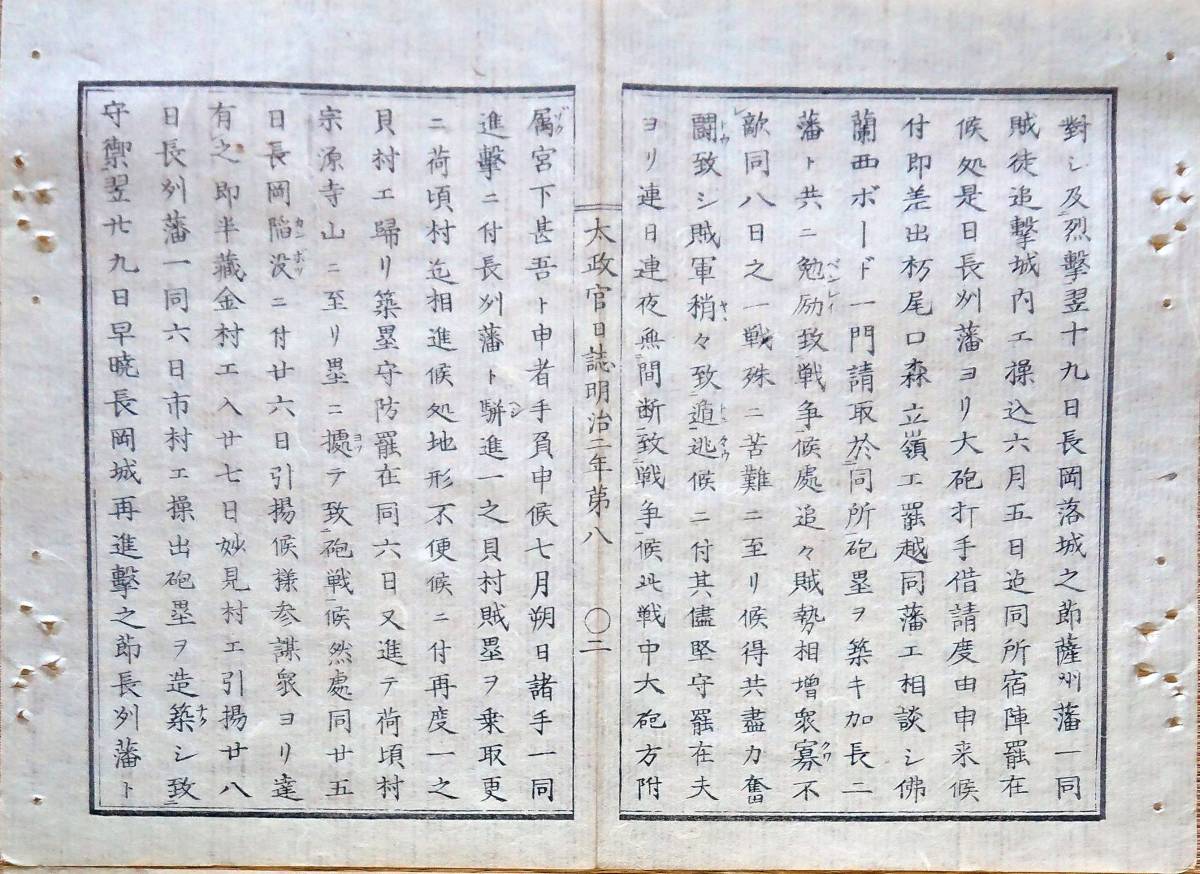 對シ及烈擊翌十九日長岡落城之節薩州藩一同
賊徒追擊城内エ操込六月五日迄同所宿陣罷在
候処是日長州藩ヨリ大砲打手借請度由申来候
付即差出杤尾口森立嶺エ罷越同藩エ相談シ佛
蘭西ボード一門請取於同所砲塁ヲ築キ加長二
藩ト共ニ勉励致戦争候處追々賊勢相増衆寡不
敵同八日之一戦殊ニ苦難ニ至リ候得共盡力奮
闘致シ賊軍稍々致遁逃候ニ付其儘堅守罷在夫
ヨリ連日連夜無間断致戦争候此戦中大砲方附
太政官日誌明治二年第八 〇二
属宮下甚吾ト申者手負申候七月朔日諸手一同
進擊ニ付長州藩ト駢進一之貝村賊塁ヲ乗取更
ニ荷頃村迄相進候処地形不便候ニ付再度一之
貝村エ歸リ築塁守防罷在同六日又進テ荷頃村
宗源寺山ニ至リ塁ニ據テ致砲戦候然處同廿五
日長岡陷没ニ付廿六日引揚候様参謀衆ヨリ達
有之即半藏金村エ入廿七日妙見村エ引揚廿八
日長州藩一同六日市村エ操出砲塁ヲ造築シ致
守禦翌廿九日早曉長岡城再進擊之節長州藩ト